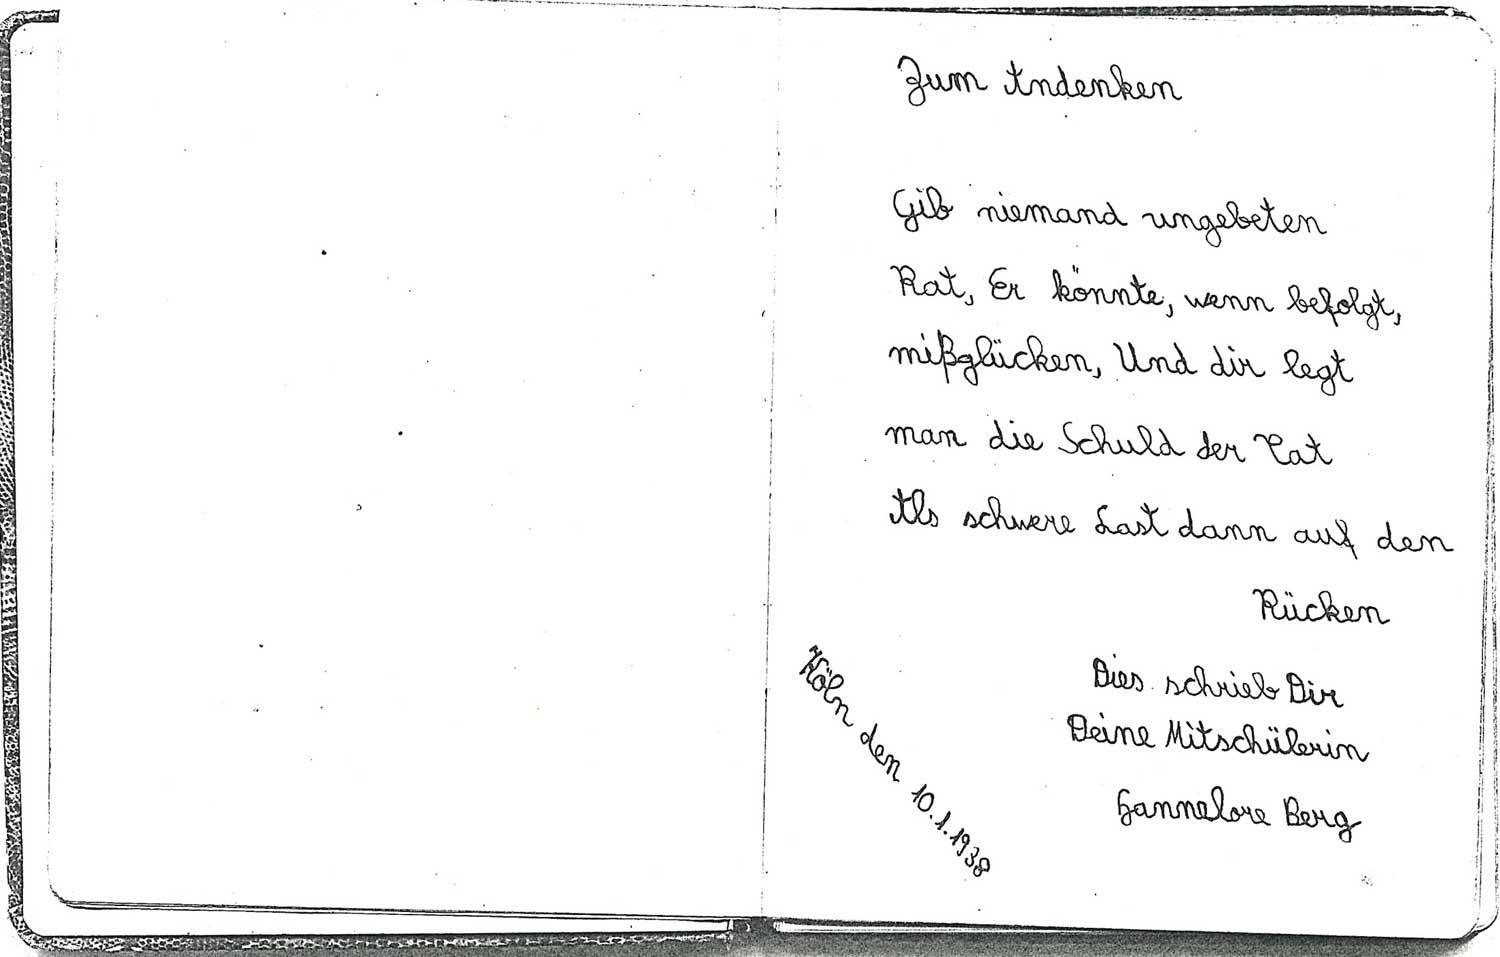 Zum Andenken
Gib niemand ungebeten
Rat, Er könnte, wenn befolgt,
mißglücken, Und dir legt
man die Schuld der Tat
Als schwere Last dann auf den
Rücken
Dies schrieb Dir
Deine Mitschülerin
Hannelore Berg
Köln den 10.1.1938